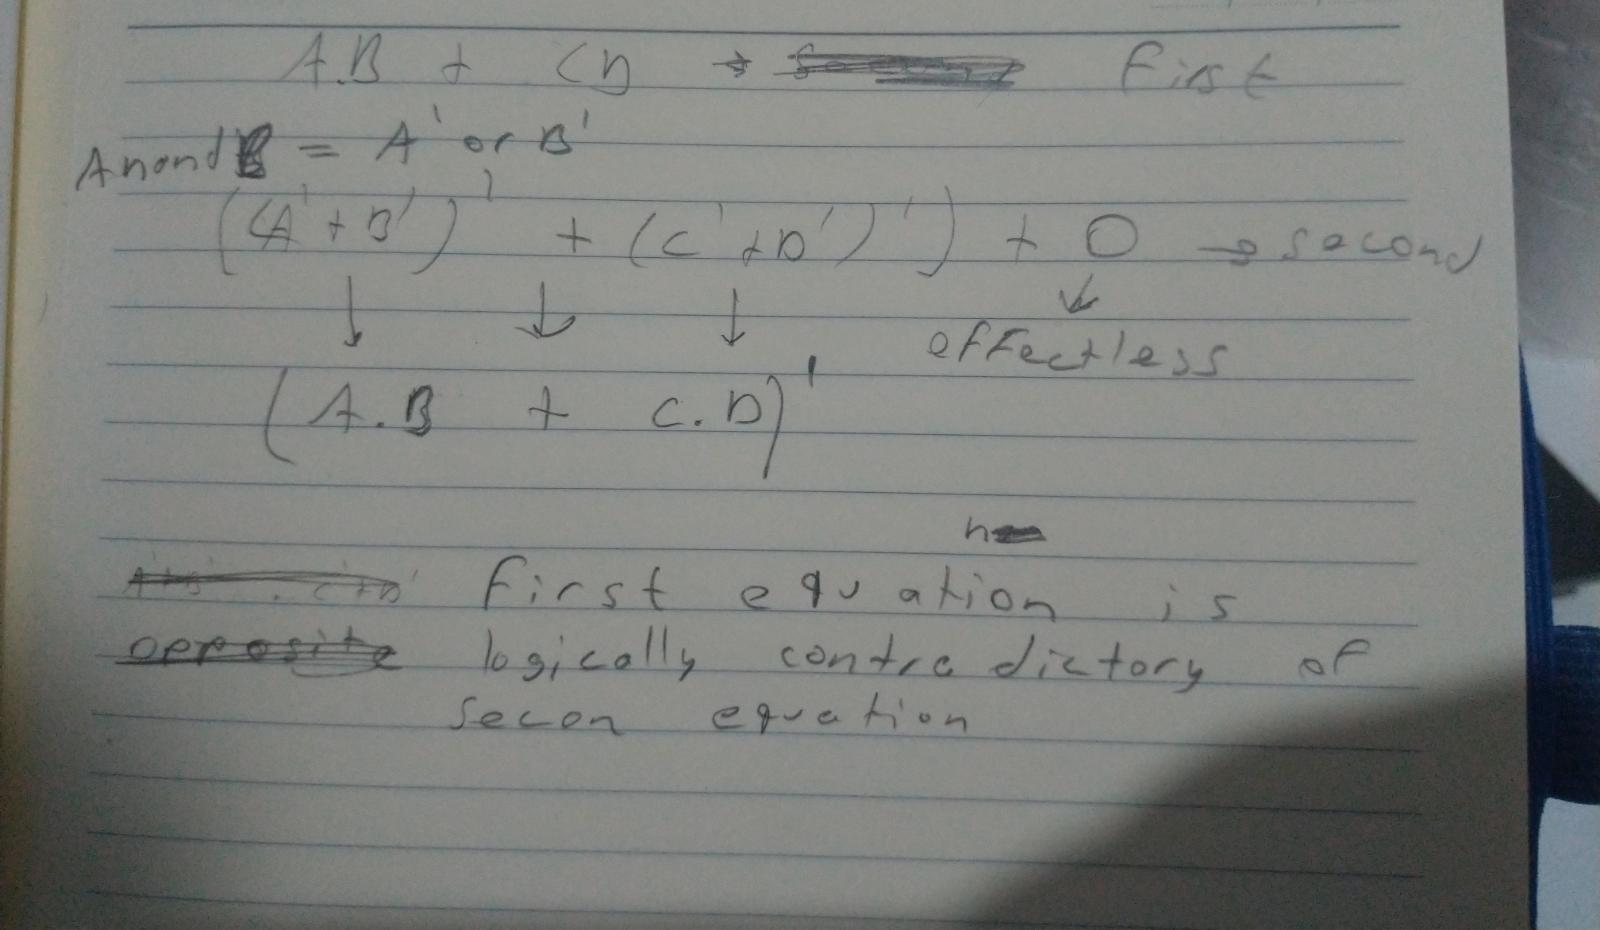 A.B + CD → First
A nand B = A' or B'
((A'+B')' + (C'+D')') + 0 → second
effectless
(A.B + C.D)'
n
First equation is
logically contradictory of
Secon equation